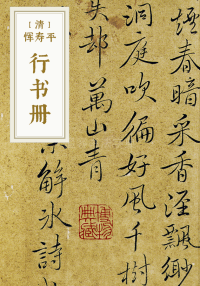 [清]
恽寿平
行书册
烟春暗采香泾飘缈
洞庭吹徧好风千樹
失却萬山青
解冰詩